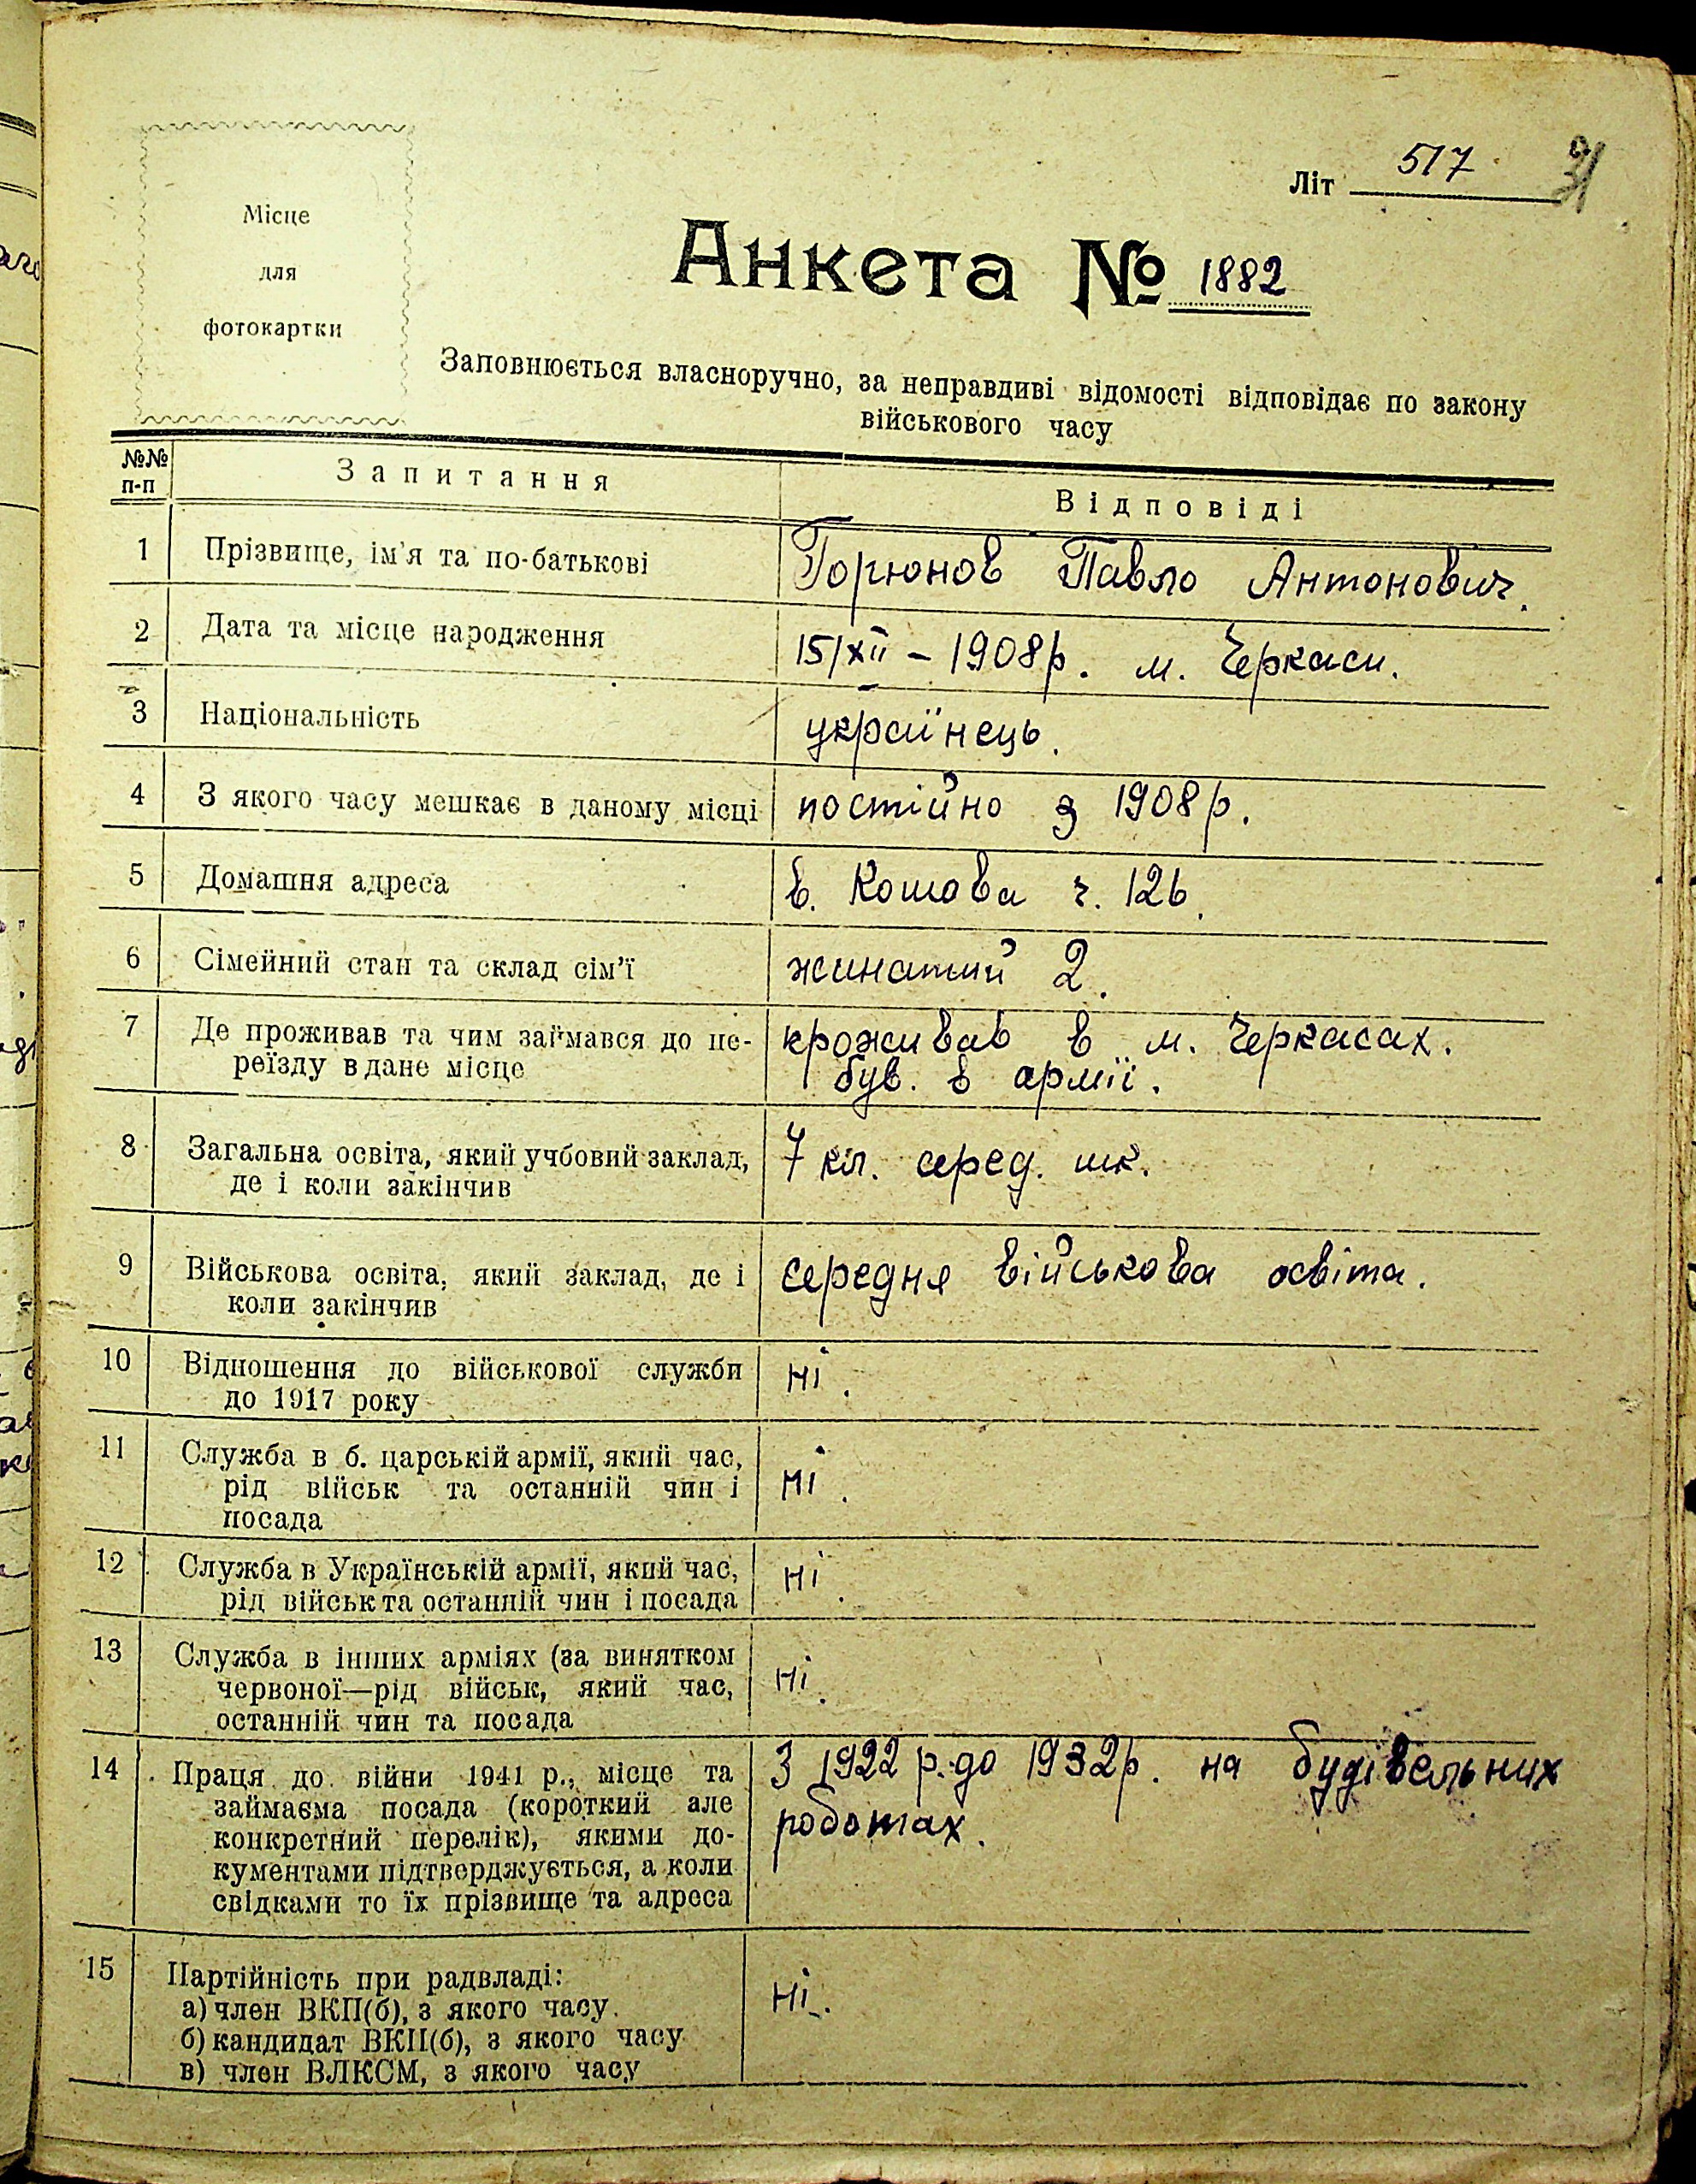 Місце
для
фотокартки
Літ 517
31
Анкета № 1882
Заповнюється власноручно, за неправдиві відомості відповідає по закону
військового часу
№№ п-п Запитання Відповіді
1 Прізвище, ім'я та по-батькові Горюнов Павло Антонович.
2 Дата та місце народження 15/XII – 1908р. м. Черкаси.
3 Національність українець.
4 З якого часу мешкає в даному місці постійно з 1908р.
5 Домашня адреса в. Кошова ч. 126.
6 Сімейний стан та склад сім'ї жинатий 2.
7 Де проживав та чим займався до пе- кроживав в м. Черкасах.
реїзду в дане місце був. в армії.
8 Загальна освіта, який учбовий заклад, 7 кл. серед. шк.
де і коли закінчив
9 Військова освіта, який заклад, де і середня військова освіта.
коли закінчив
10 Відношення до військової служби ні.
до 1917 року
11 Служба в б. царській армії, який час,
рід військ та останній чин і ні.
посада
12 Служба в Українській армії, який час, ні.
рід військ та останній чин і посада
13 Служба в інших арміях (за винятком
червоної—рід військ, який час, ні.
останній чин та посада
14 Праця до війни 1941 р., місце та З 1922 р. до 1932р. на будівельних
займаєма посада (короткий але роботах.
конкретний перелік), якими до-
кументами підтверджується, а коли
свідками то їх прізвище та адреса
15 Партійність при радвладі: ні.
а) член ВКП(б), з якого часу.
б) кандидат ВКП(б), з якого часу
в) член ВЛКСМ, з якого часу